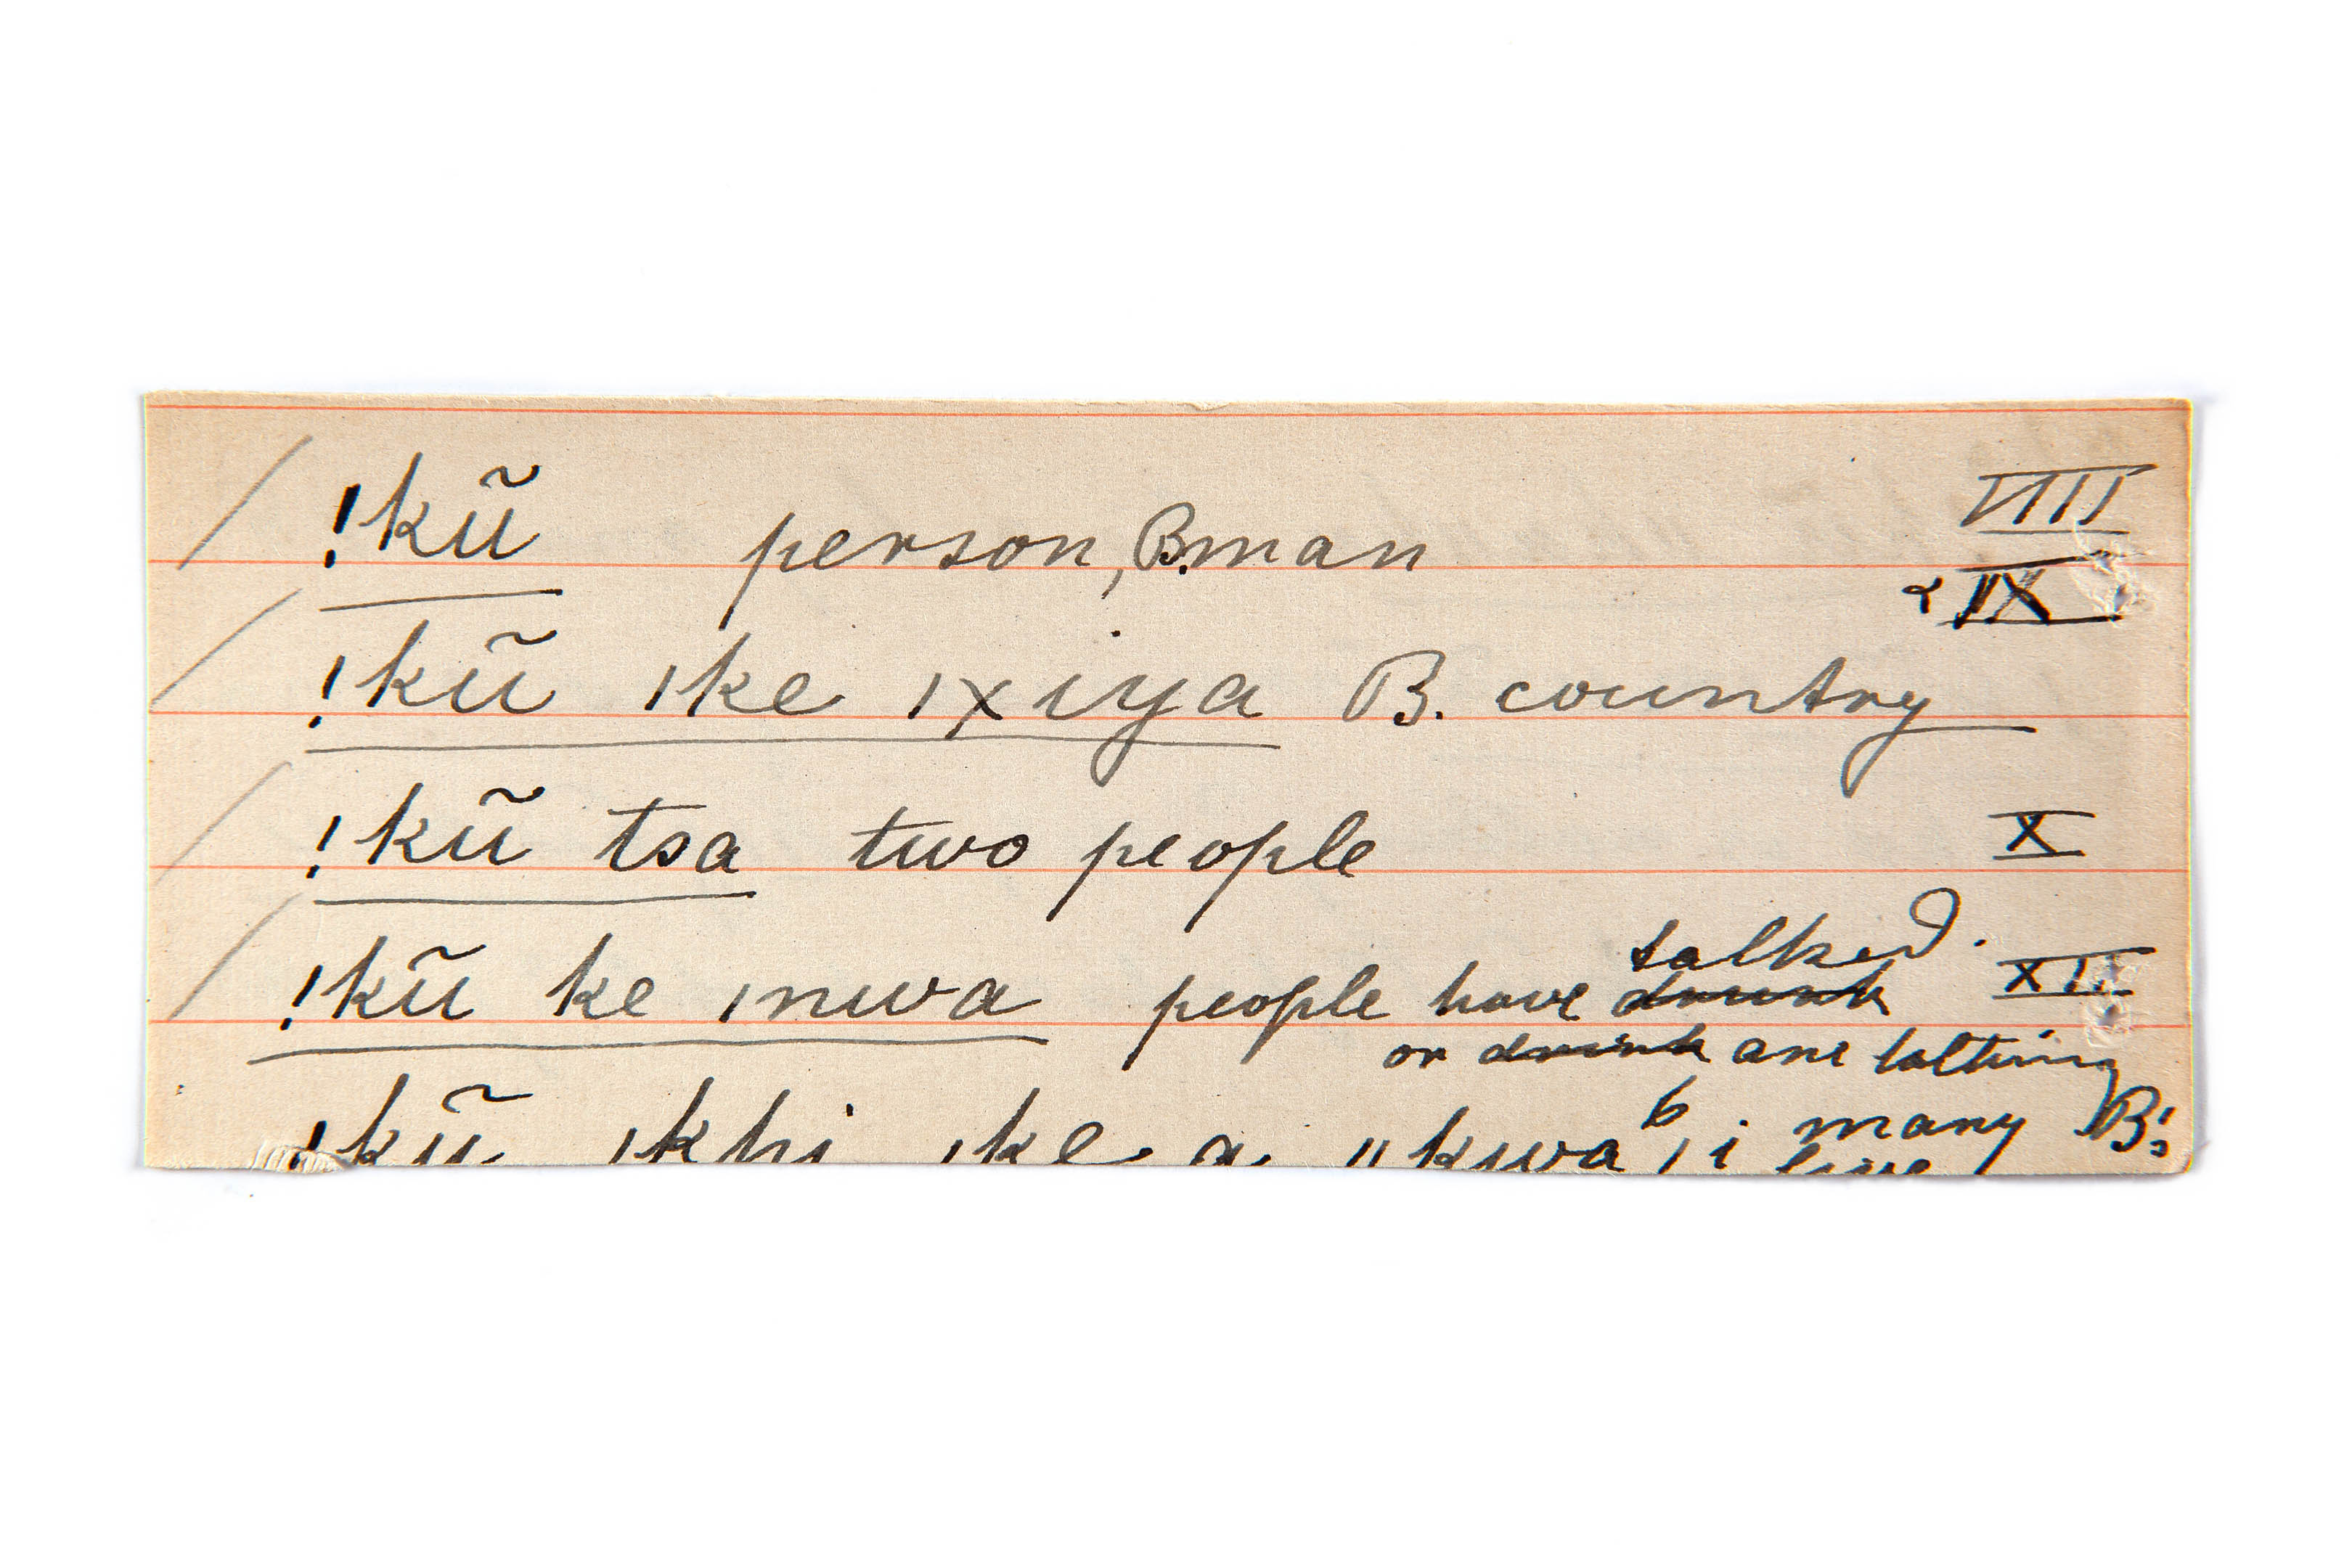 !kũ person, B.man VIII
& IX
!kũ ǀke ǀxiya B. country
!kũ tsa two people X
talked.
!kũ ke ǀnwa people have drunk XII
or drink are talking
!kũ ǀkhi ǀke a ǁkwa ǀi many B's
live